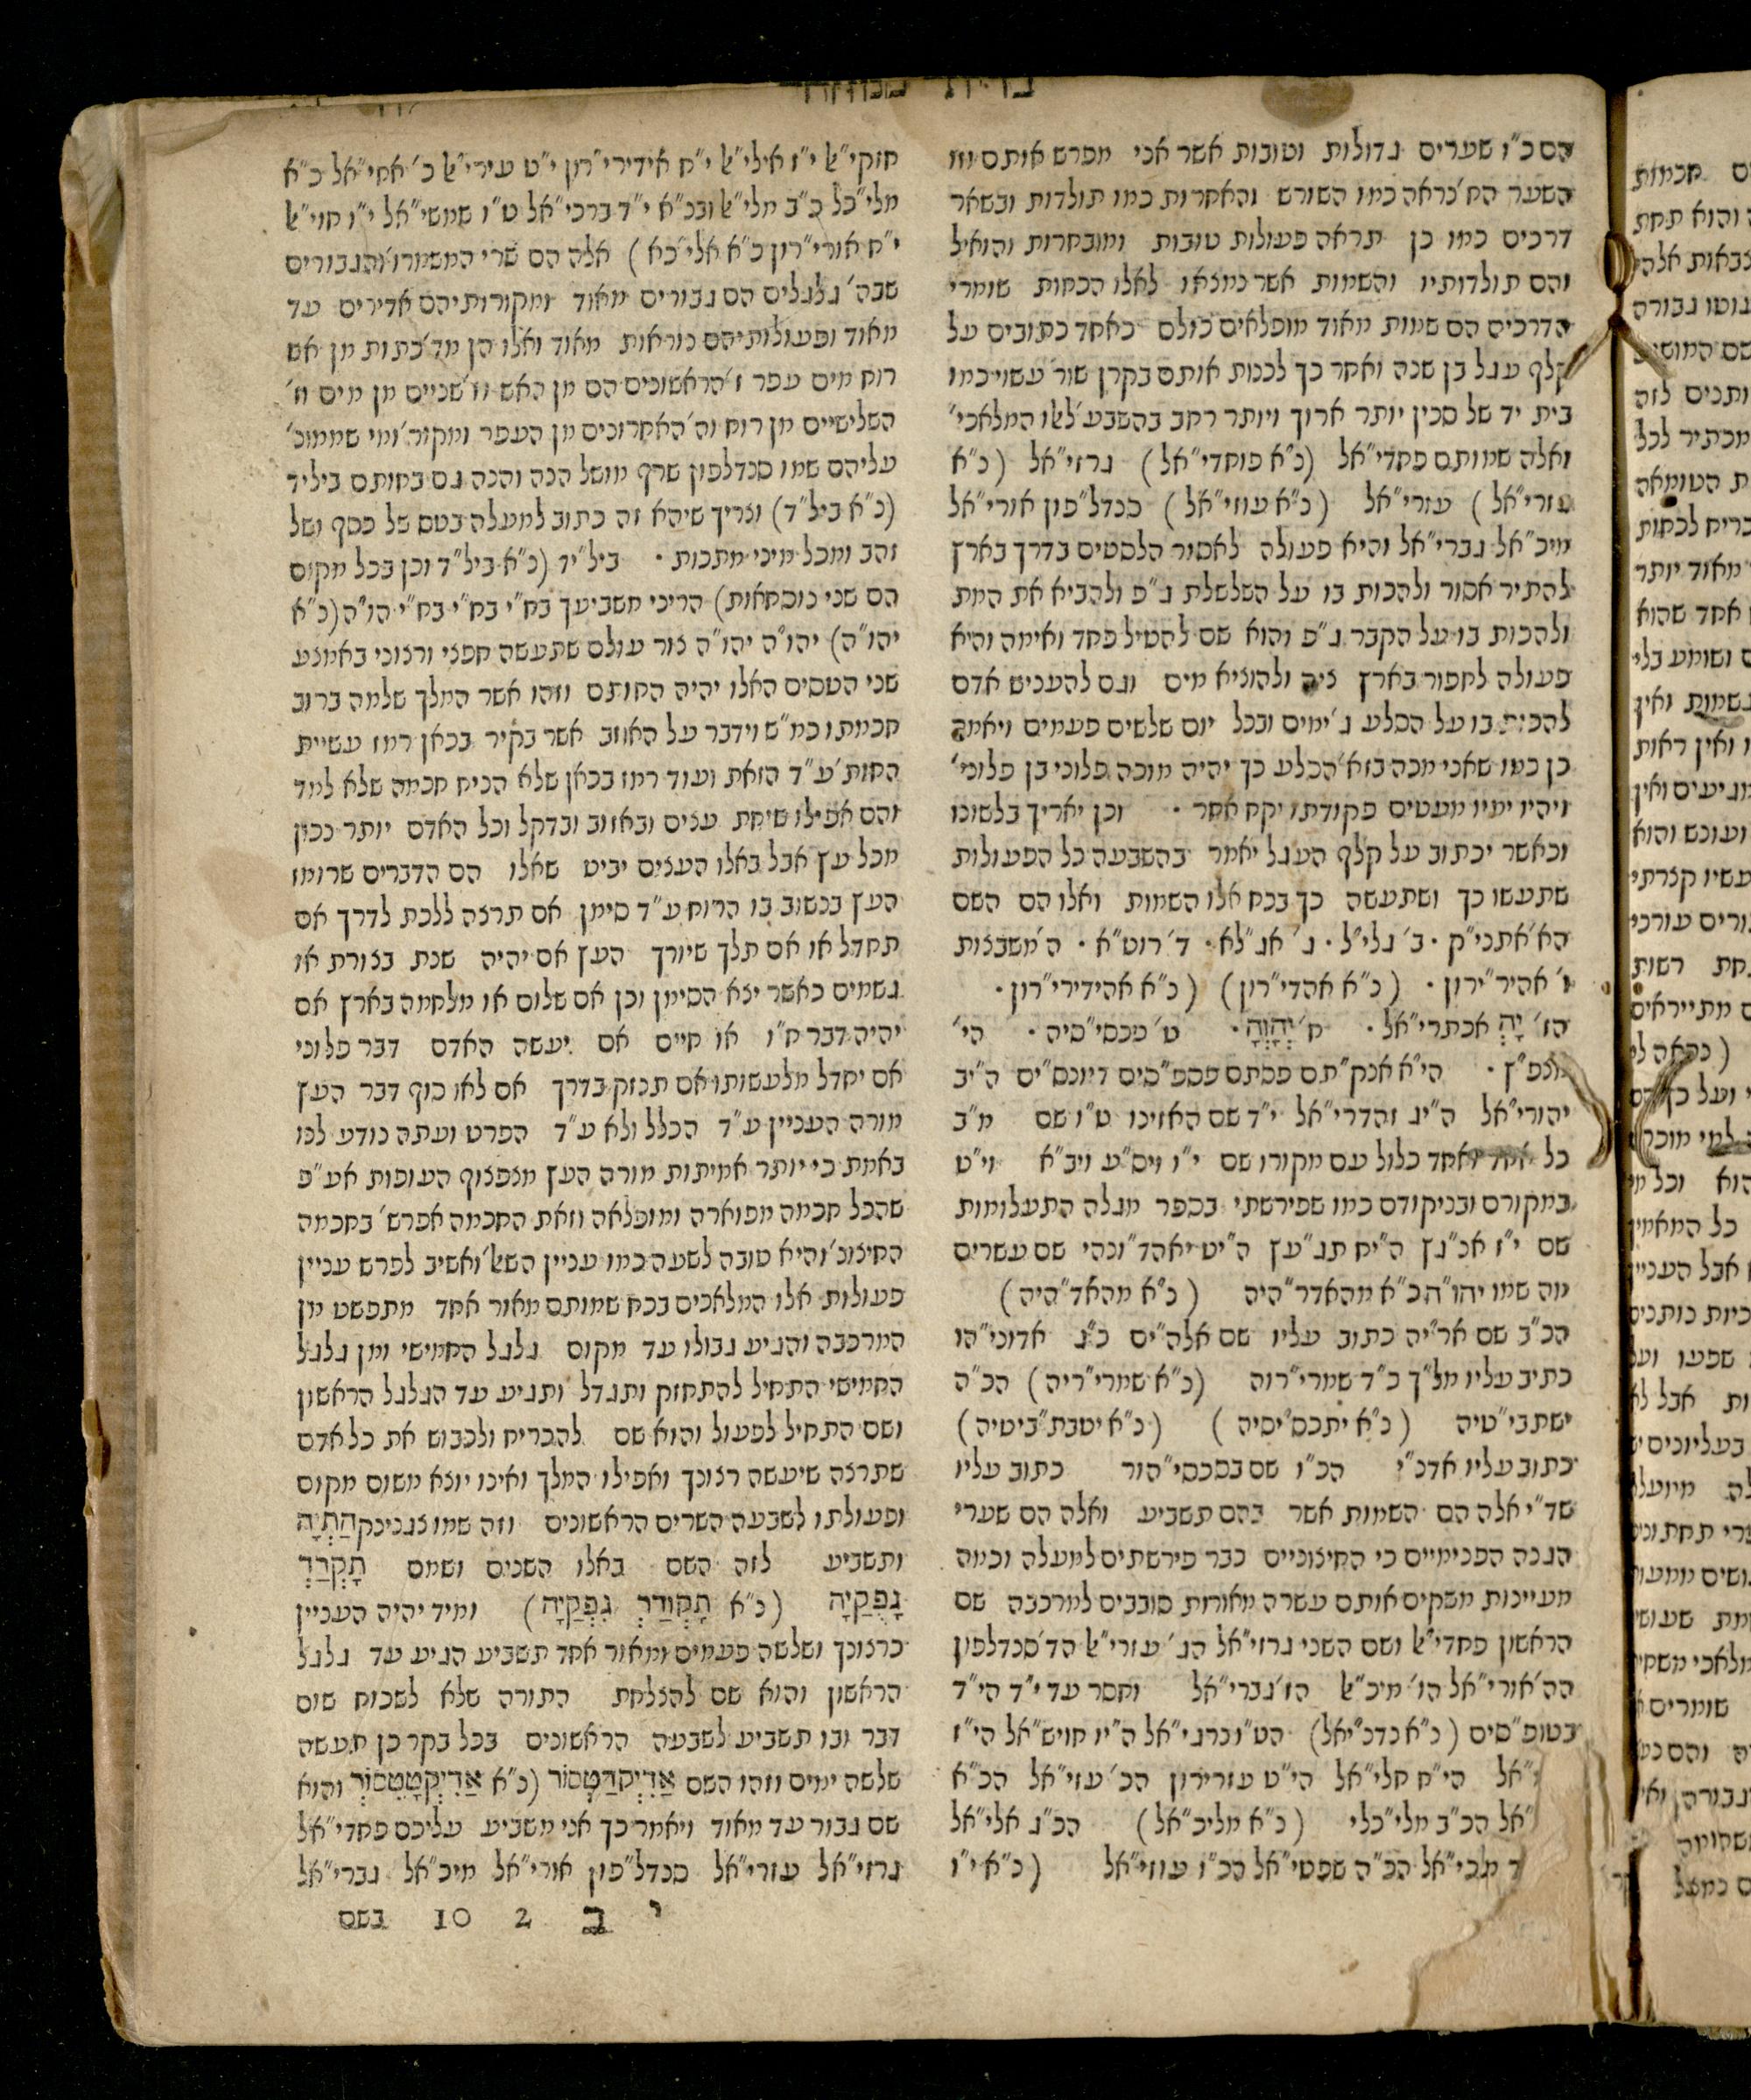 הם כ"ו שערים גדולות וטובות אשר אני מפרש אותם וזו
השער הח' נראה כמו השורש והאחרות כמו תולדות ובשאר
דרכים כמו כן תראה פעולות טובות ומובחרות והואיל
והם תולדותיו והשמות אשר נמצאו לאלו הכחות שומרי
הדרכים הם שמות מאוד מופלאים כולם כאחד כתובים על
קלף עגל בן שנה ואחר כך לכנות אותם בקרן שור עשוי כמו
בית יד של סכין יותר ארוך ויותר רחב בהשבע' לשו המלאכי'
ואלה שמותם פחדי"אל (נ"א פוחדי"אל) גרזי"אל (נ"א
עזרי"אל) עזרי"אל (נ"א עוזי"אל) סנדל"פון אורי"אל
מיכ"אל גברי"אל והיא פעולה לאסור הלסטים בדרך בארץ
להתיר אסור ולהכות בו על השלשלת ג"פ ולהביא את המת
ולהכות בו על הקבר ג"פ והוא שם להטיל פחד ואימה והיא
פעולה לחפור בארץ ציה ולהוציא מים וגם להעניש אדם
להכות בו על הסלע ג' ימים ובכל יום שלשים פעמים ויאמר
כן כמו שאני מכה בזא' הסלע כך יהיה מוכה פלוני בן פלוני'
ויהיו ימיו מעטים פקודתו יקח אחר · וכן יאריך בלשונו
וכאשר יכתוב על קלף העגל יאמר בהשבעה כל הפעולות
שתעשו כך ושתעשה כך בכח אלו השמות ואלו הם השם
הא' אתכי"ק · ב' גלי"ל · ג' אנ"לא · ד' רוט"א · ה' משבצות
ו' אהיר"ירון · (נ"א אהדי"רון) (נ"א אהידירי"רון ·
הז' יָהְ אכתרי"אל · ח' יְהֶוְהָ · ט' מכסי"סיה · הי'
הי"א אנק"תם פסתם פספ"סים דיונס"ים ה"יב
יהורי"אל ה"יג זהדרי"אל י"ד שם האזינו ט"ו שם מ"ב
כל אחד ואחד כלול עם מקורו שם י"ו ויס"ע ויב"א וי"ט
במקורם ובניקודם כמו שפירשתי בספר מגלה התעלומות
שם י"ז אכ"גץ ה"יח תג"עץ ה"יט יאהד"ונהי שם עשרים
וזה שמו יהו"ה כ"א מהאדר"היה (נ"א מהאד"היה)
הכ"ב שם אר"יה כתוב עליו שם אלה"ים כ"ג אדוני"הו
כתיב עליו מל"ך כ"ד שמרי"רוה (נ"א שמרי"ריה) הכ"ה
ישתבי"טיה (נ"א יתכס"יסיה) (נ"א יטבת"ביטיה)
כתוב עליו אדנ"י הכ"ו שם בסכסי"הור כתוב עליו
שד"י אלה הם השמות אשר בהם תשביע ואלה הם שערי
הגנה הפנימיים כי החיצוניים כבר פירשתים למעלה וכמה
מעיינות משקים אותם עשרה מאורות סובבים למרכבה שם
הראשון פחדי"אל ושם השני גרזי"אל הג' עזרי"אל הד' סנדלפון
הה' אורי"אל הו' מיכ"אל הז' גברי"אל וחסר עד י"ד הי"ד
בטופ"סים (נ"א כדכ"יאל) הט"ו כרגי"אל ה"יו חויש"אל הי"ז
"אל הי"ח חלי"אל הי"ט עזרירון הכ' עזי"אל הכ"א
"אל הכ"ב מלי"כלי (נ"א מליכ"אל) הכ"ג אלי"אל
מלכי"אל הכ"ה שפטי"אל הכ"ו עוזי"אל (נ"א י"ו
חזקי"אל י"ז אילי"אל י"ח אידירי"רון י"ט עירי"אל כ' אחי"אל כ"א
מלי"כל כ"ב מלי"אל ובנ"א י"ד ברכי"אל ט"ו שמשי"אל י"ו חוי"אל
י"ח אורי"רון כ"א אלי"כא) אלה הם שרי המשמרו' והגבורים
שבה' גלגלים הם גבורים מאוד ומקורותיהם אדירים עד
מאוד ופעולותיהם נוראות מאוד ואלו הן מד' כתות מן אש
רוח מים עפר ז' הראשונים הם מן האש וז' שניים מן מים וז'
השלישיים מן רוח וה' האחרונים מן העפר ומקור' ומי שממונ'
עליהם שמו סנדלפון שרף מושל הנה והנה גם בחותם ביליד
(נ"א ביל"ד) וצריך שיהא זה כתוב למעלה בטס של כסף ושל
זהב ומכל מיני מתכות · ביל"יד (נ"א ביל"ד וכן בכל מקום
הם שני נוסחאות) הריני משביעך בח"י בח"י בח"י הו"ה (נ"א
יהו"ה) יהו"ה יהו"ה צור עולם שתעשה חפצי ורצוני באמצע
שני הטסים האלו יהיה החותם וזהו אשר המלך שלמה ברוב
חכמתו כמ"ש וידבר על האזוב אשר בקיר בכאן רמז עשיית
החות' ע"ד הזאת ועוד רמז בכאן שלא הניח חכמה שלא למד
והם אפילו שיחת עצים ובאזוב ובדקל וכל האדם יותר נכון
מכל עץ אבל באלו העצים יביט שאלו הם הדברים שרומז
העץ בנשוב בו הרוח ע"ד סימן אם תרצה ללכת לדרך אם
תחדל או אם תלך שיורך העץ אם יהיה שנת בצורת או
גשמים כאשר יצא הסימן וכן אם שלום או מלחמה בארץ אם
יהיה דבר ח"ו או חיים אם יעשה האדם דבר פלוני
אם יחדל מלעשותו אם תנזק בדרך אם לאו סוף דבר העץ
מורה העניין ע"ד הכלל ולא ע"ד הפרט ועתה נודע לנו
באמת כי יותר אמיתות מורה העץ מצפצוף העופות אע"פ
שהכל חכמה מפוארה ומופלאה וזאת החכמה אפרש' בחכמה
החיצונ' והיא טובה לשעה כמו עניין השא' ואשיב לפרש עניין
פעולות אלו המלאכים בכח שמותם מאור אחד מתפשט מן
המרכבה והגיע גבולו עד מקום גלגל החמישי ומן גלגל
החמישי התחיל להתחזק ותגדל ותגיע עד הגלגל הראשון
ושם התחיל לפעול והוא שם להבריח ולכבוש את כל אדם
שתרצה שיעשה רצונך ואפילו המלך ואינו יוצא משום מקום
ופעולתו לשבעה השרים הראשונים וזה שמו צגניק הַתְיָה
ותשביע לזה השם באלו השנים ושמם תָקְרַדְ
גָפֻקַיָה (נ"א תָקְוַדַרְ גִפְּקַיָה) ומיד יהיה העניין
כרצונך ושלשה פעמים ומאור אחד תשביע הגיע עד גלגל
הראשון והוא שם להצלחת התורה שלא לשכוח שום
דבר ובו תשביע לשבעה הראשונים בכל בקר כן תעשה
שלשה ימים וזהו השם אַדִיְקְדַטְסוֹר (נ"א אַדִיְקְטָטִסוֹרְ והוא
שם גבור עד מאוד ויאמר כך אני משביע עליכם פחדי"אל
גרזי"אל עזרי"אל סנדל"פון אורי"אל מיכ"אל גברי"אל
י ב 2 10 בשם